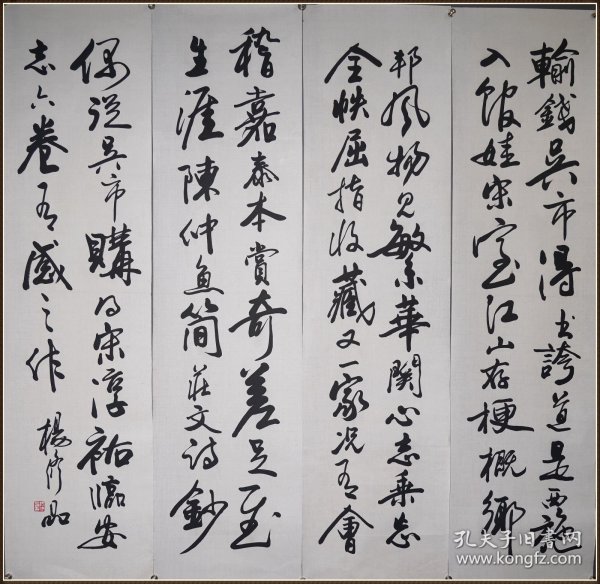 輸錢吳市得書誇道是西施
入館娃宋室江山存梗概鄉
邦風物見繁華關心志乘忘
全帙屈指收藏又一家况有會
稽嘉泰本賞奇差足慰
生涯陳仲魚簡莊文詩鈔
偶從吳市購得宋淳祐臨安
志六卷有感之作 楊
孔夫子旧书网
www.kongfz.com